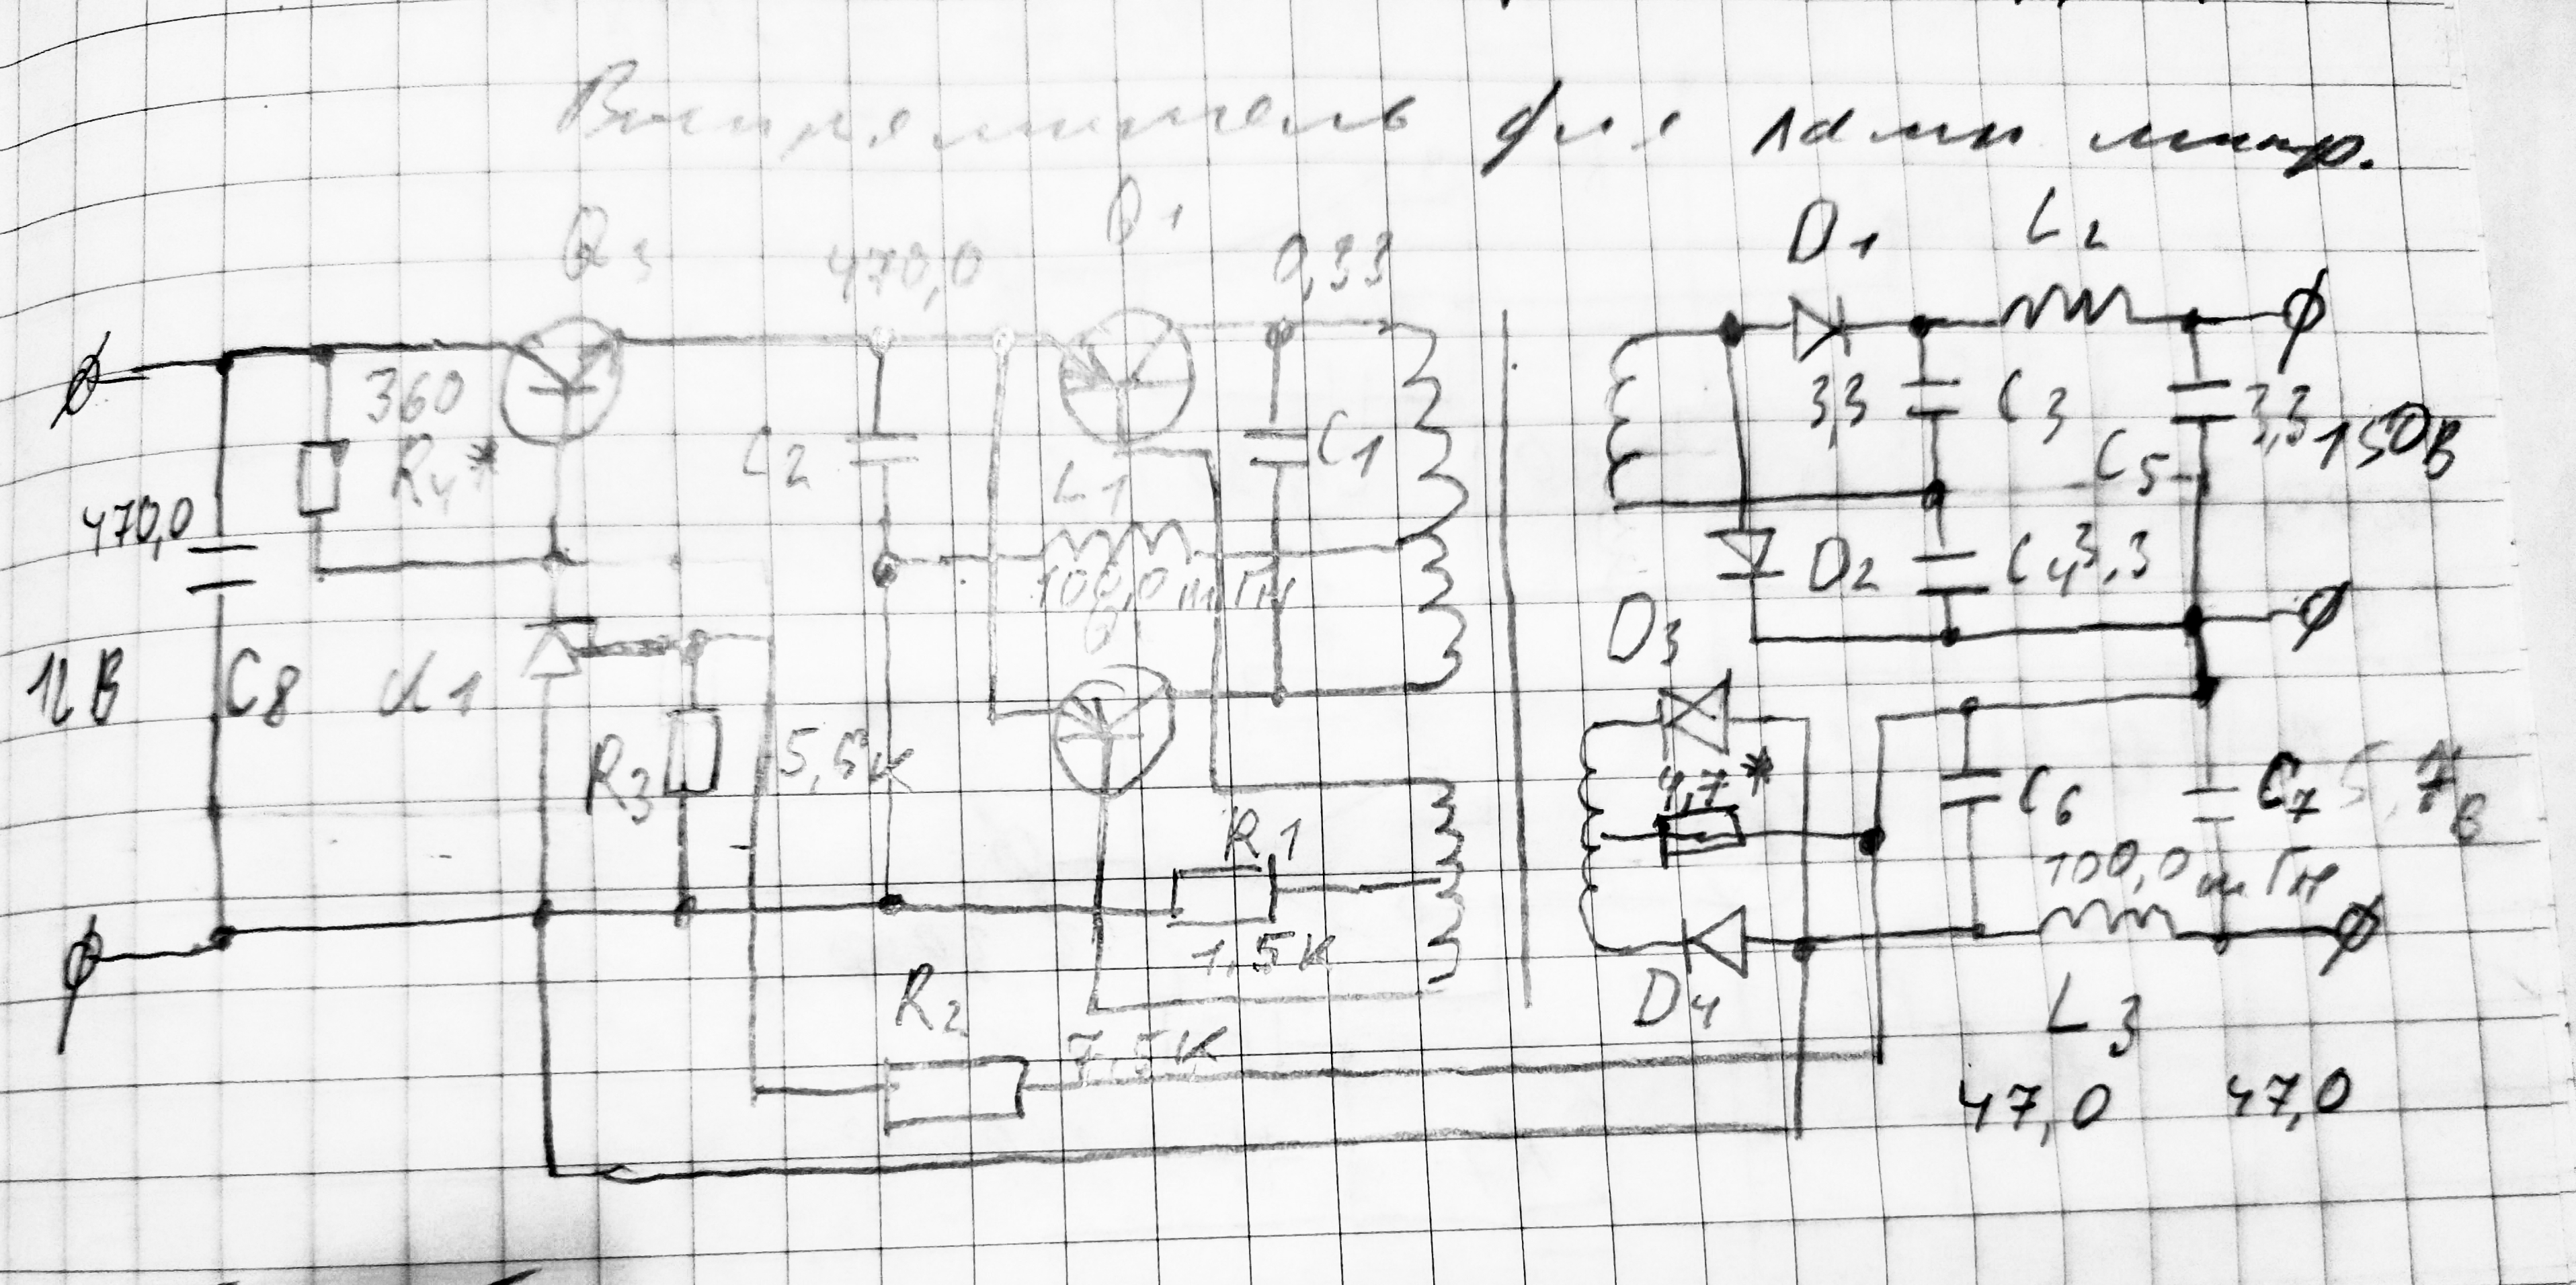 Выпрямитель для
Q3 470,0 Q1 0,33 D1 L2
360
R4*
C2
L1
C1
3,3 C3
3,3
C5
150В
470,0
100,0 мГн
D2 C4 3,3
D3
12В C8
R3
5,6К
4,7*
C6 C7 5,7В
R1
100,0 мГн
1,5К
R2
7,5К
D4
L3
47,0 47,0